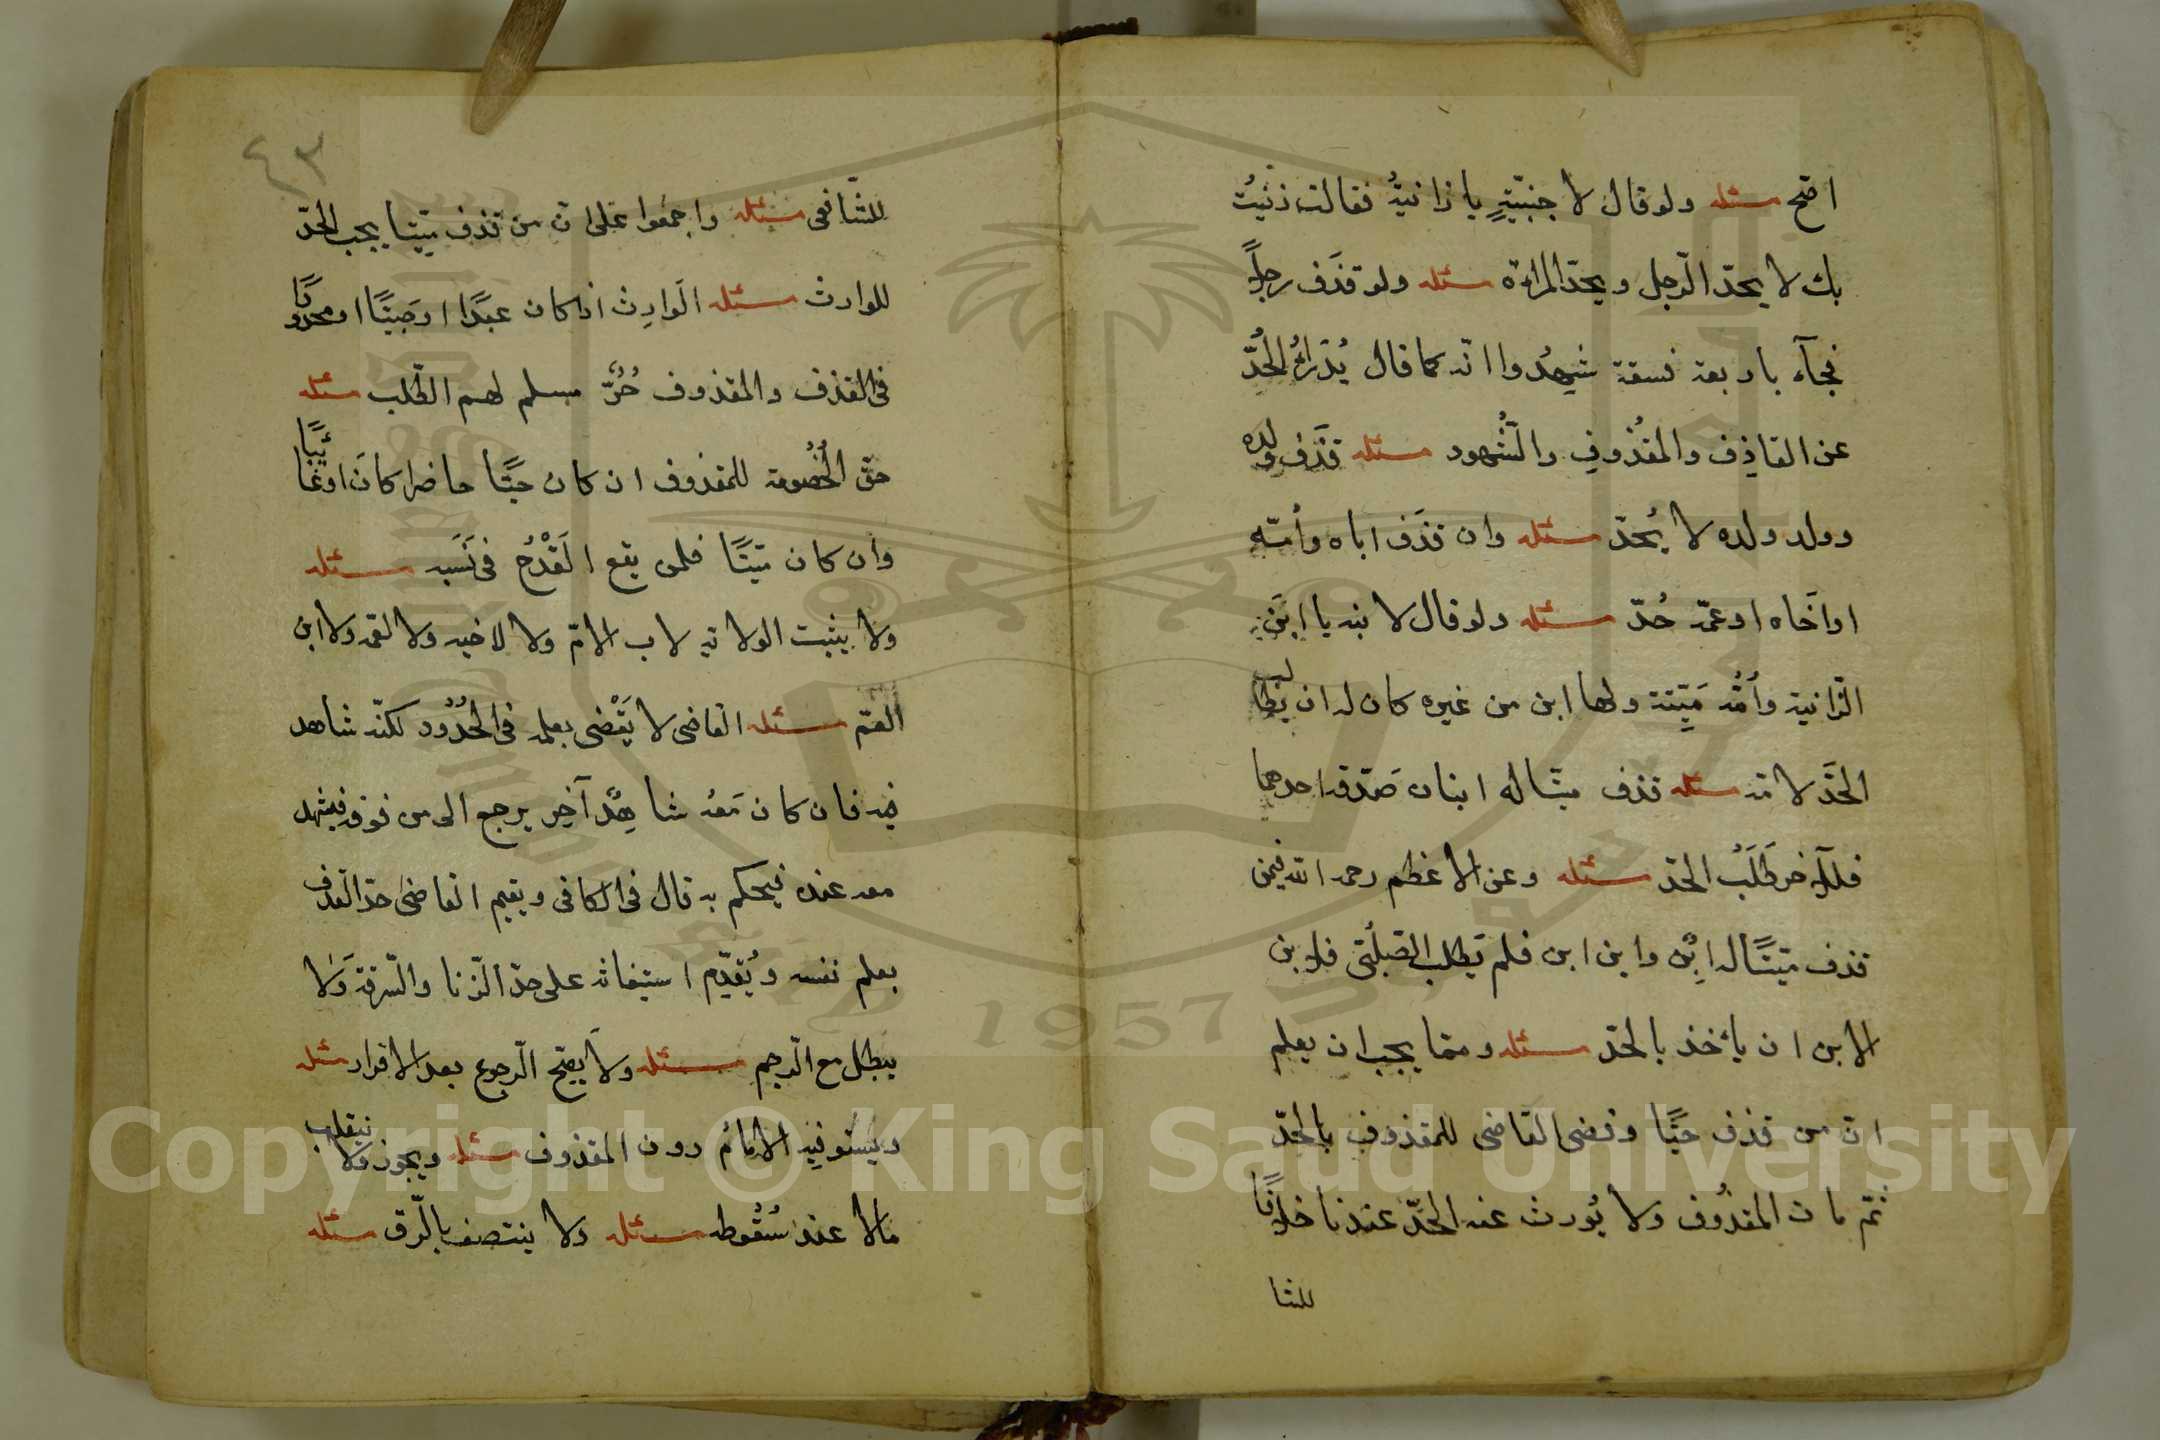 اصح مسئله ولو قال لاجنبيّةٍ يا زانيةُ فقالت زنيتُ
بك لا يحدّ الرّجل ويحدّ المراءة مسئله ولو قذَف رجلاً
فجآء باربعة فسقة شهِدُوا انّه كما قال يُدْرَاءُ الحُدّ
عن القاذِف والمقذُوف والشُّهود مسئله قذَف ولده
وولد ولده لا يُحدّ مسئله وان قذَف اباه وأمّه
او اَخاه او عمّه حُدّ مسئله ولو قال لابنه يا ابنَ
الزّانية وأمُّه مَيِّتة ولها ابن من غيره كان له ان يطلب
الحَدّ لامّه مسئله قذف ميّتا له ابنان صَدّقه احدهما
فللآخر طَلَبُ الحدّ مسئله وعن الاعظم رحمه الله فيمن
قذف ميّتًا له ابنٌ وابن ابن فلم يطلب الصّلْبِيّ فلابن
الابن ان يأخذ بالحدّ مسئله وممّا يجب ان يعلم
انّ من قذف حيًّا وقضى القاضى للمقذوف بالحدّ
ثمّ مات المقذُوف ولا يُورث عنه الحَدّ عندنا خلافًا
للشا
٤٣
للشّافعى مسئله واجمَعوا على انّ من قذف ميّتا يجب الحدّ
للوارث مسئله الوارِث اذا كان عبدًا او صَبيًّا او محدودًا
فى القذف والمقذوف حُرٌّ مسلم لهم الطّلب مسئله
حقّ الخُصُومة للمقذوف ان كان حيًّا حاضرا كانَ او غائبًا
وان كان ميّتًا فلمن يقع القَدْحُ فى نَسَبه مسئله
ولا يثبت الولاية لاب الامّ ولا لاخيه ولا لعمّه ولا ابن
العمّ مسئله القاضى لا يَقْضى بعلمه فى الحُدُود لكنّه شاهد
فيه فان كان مَعَهُ شاهِدٌ آخر يرجع الى من فوقه فيشهد
معه عنده فيحكم به قال فى الكافى ويقيم القاضى حدّ القذف
بعلم نفسه ويُقدّم استيفائه على حدّ الزّنا والسّرقة وَلا
يبطل مع الرّجم مسئله ولا يَصِحّ الرّجوع بعد الاقرار مسئله
ويستوفيه الامامُ دون المقذوف مسئله ويجوز ولا ينقلب
مالا عند سُقُوطه مسئله ولا ينتصف بالرّق مسئله
Copyright © King Saud University
1957